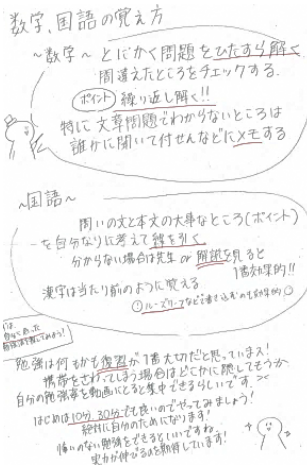 数学、国語の覚え方
～数学～ とにかく問題をひたすら解く
間違えたところをチェックする.
ポイント 繰り返し解く!!
特に文章問題でわからないところは
誰かに聞いて付せんなどにメモする
～国語～
問いの文と本文の大事なところ(ポイント)
を自分なりに考えて線を引く
分からない場合は先生 or 解説を見ると
1番効果的!!
漢字は当たり前のように覚える
ルーズリーフなどに書き込むのも効果的
勉強は何よりも復習が1番大切だと思っています!
携帯をさわってしまう場合はどこかに隠してもらうか
自分の勉強姿を動画にとると集中できるらしいです.
はじめは10分、30分でも良いのでやってみましょう!
絶対に自分のためになります!
悔いのない勉強をできるといいですね.
実力が伸びるのを期待しています!